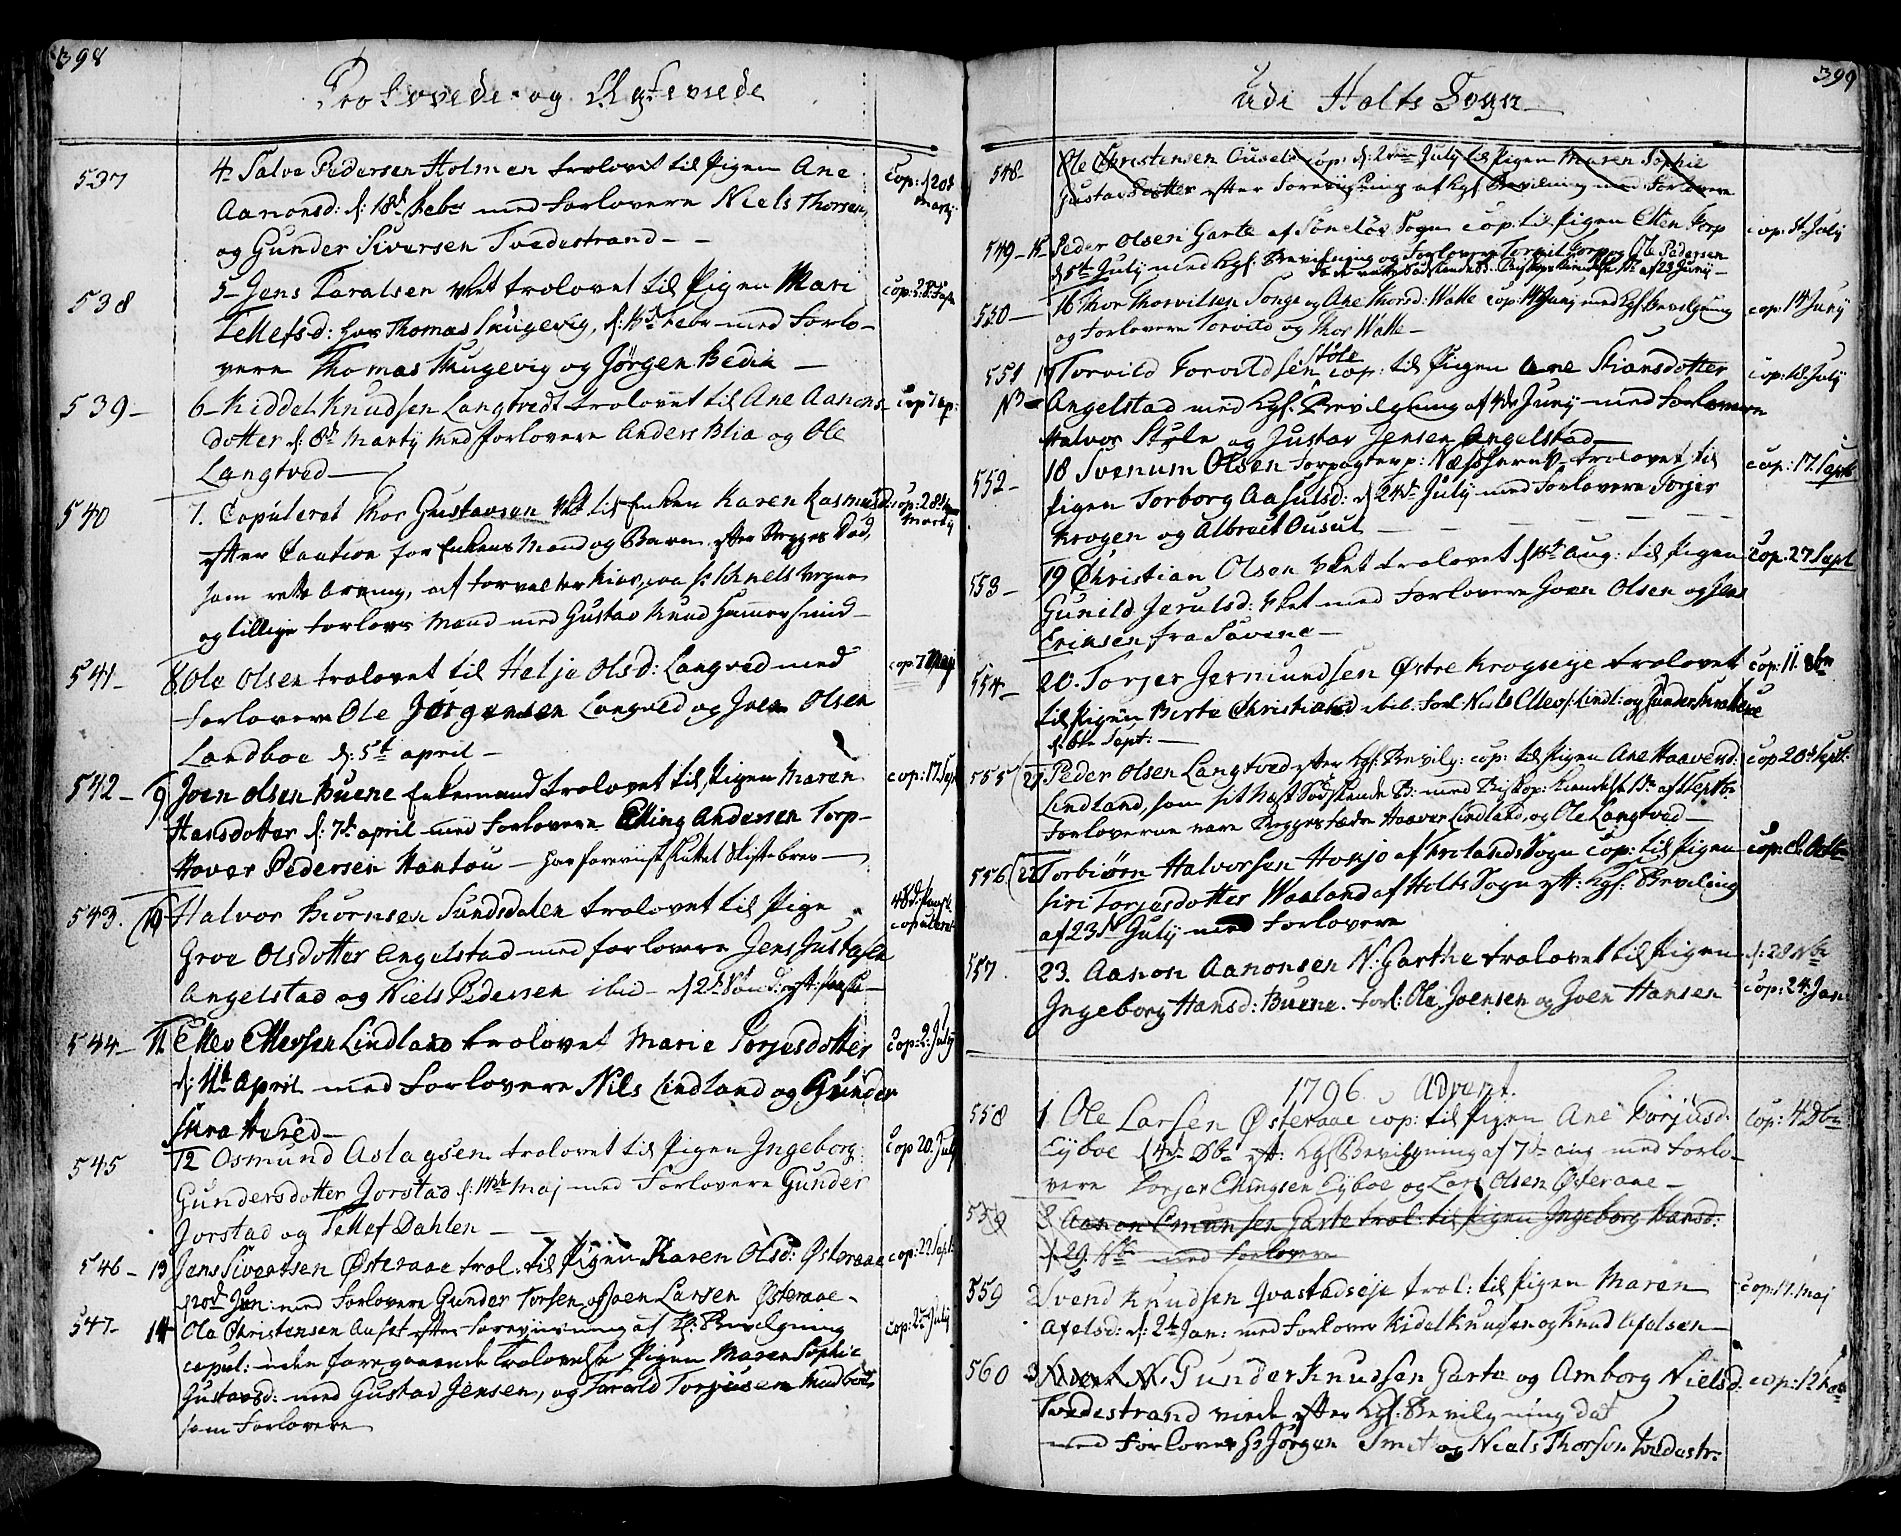 398
Trolovede og Ægteviede
537
4. Salve Pedersen Holmen trolovet til Pigen Ane
Aanonsd: d: 18d Febr med Forlovere Niels Thorsen
og Gunder Siversen Tvedestrand - -
cop: d 20de
Martij
538
5 - Jens Taralsen trolovet til Pigen Mari
Tellefsd: hos Thomas Skugevig, d: Febr - med Forlo-
vere Thomas Skugevig og Jørgen Bedin -
cop: 28
539 -
6 - Kiddel Knudsen Langtvedt trolovet til Ane Aanons
dotter d: 8d Martij med forlovere Anders Blia og Ole
Langtved -
cop 7 ap:
540
7. Copuleret Thor Gustavsen til Enken Karen Rasmusd:
efter Caution for Enkens Mand og Barn efter Begges Død,
som rette Arving, af forvalter paa Sr Schnels Vegne
og tillige Forlovs Mænd med Gustav Knud Hammersmid -
cop: 28de
Martij
541 -
8 Ole Olsen trolovet til Helje Olsd: Langved med
Forlovere Ole Jørgensen Langved og Joen Olsen
Landboe d: 5t april -
cop 7 Maij
542 - 9
Joen Olsen Buene Enkemand trolovet til Pigen Maren
Hansdotter d: 7de april med Forlovere Elling Andersen Torp -
Haver Pedersen Hantou - har foreviist sluttet Skiftebrev -
cop: 17. Sept
543. (10
Halvor Biørnsen Sundsdalen trolovet til Pige
Groe Olsdotter Angelstad med forlovere Jens Justasen
Angelstad og Niels Pedersen ibid - d 2d Sønd: eft: Paaske -
copuleret
544 - 11.
Ellev Ellevsen Lindland trolovet Marie Torjesdotter
d: 11t April med Forlovere Nils Lindland og Gunder

cop: 2: July
545
12 Osmund Aslagsen trolovet til Pigen Ingeborg
Gundersdotter Jorstad d: 14de Maj med Forlovere Gunder
Jorstad og Tellef Dahlen -
cop 20. July
546 - 13
Jens Sivertsen Østeraae trol: til Pigen Karen Olsd: Østeraae
d 20d Jun: med Forlovere Gunder Torsen og Joen Larsen Østeraae -
cop: 22 Sept:
547 - 14
Ole Christensen efter foreviisning af Kl: Bevilgning
copul: uden foregaaende Trolovelse Pigen Maren Sophie
Gustavsd: med Gustav Jensen, og Tarald Torjusen
som Forlovere
cop: 2den July
399
udi Holts Sogn
548 -
Ole Christensen Ousel cop: d: 2den July til Pigen Maren Sophie
Gustavsdotter efter Foreviisning af Kgl: Bevilning med Forlovere
549 - 15
Peder Olsen Garte af Søndeløv Sogn cop: til Pigen Ellen Torp
d 5te July med Kgl: Bevilgning og Forlovere Torvil Torp og Ole Pedersen
af 22 Junij -
cop: July
550 -
16 Thor Thorvilsen Songe og Ane Thorsd: Watte cop: 14 Junij med Kgl Bevilgning
og Forlovere Torvild og Thor Watte -
cop: 14 Junij
551 17
Torvild Torvildsen Støle cop: til Pigen Ane Stiansdotter
Angelstad med Kgl. Bevilgning af 4de Junij - med Forlovere
Halvor Støle og Justav Jensen Angelstad -
cop: July
552 -
18 Svenum Olsen Forpagter p: Næs Jernv: trolovet til
Pigen Torborg Aasulsd: d 24de July med Forlovere Torjer
Krogen og Albrect Ousul - - - -
cop: 17. Sept
553 -
19 Christian Olsen trolovet d 15de Aug: til Pigen
Gunild Jerulsd: med Forlovere Joen Olsen og Jens
Eriksen fra Savene -
cop. 27 Sept
554 -
20. Torjer Jermundsen Østre Krogseije trolovet
til Pigen Birte Christiansd ibid: Forl: Niels Ellevs: Lindl: og Gunder
d: 6te Sept: -
cop: 11. 8br
555 (21
Peder Olsen Langtved efter Kgl: Bevilg: cop: til Pigen Ane Haaversd:
Lindland, som sit Næst Sødskende B: med Biskop: af Septbr
Forloverne vare Begges Fædre Haaver Lindland, og Ole Langtved -
cop 20de Sept:
556 (22
Torbiørn Halvorsen af Frolands Sogn cop: til Pigen
Siri Torjesdotter Waaland af Holts Sogn eft: Kgl: Beviling
af 23de July med Forlovere
cop: d. Octbr
557.
23. Aanon Aanonsen N: Garthe trolovet til Pigen
Ingeborg Hansd: Buene. Forl: Ole Joensen og Joen Hansen
d: 28 Nbr
cop: 24: Jan
1796. Advent.
558
1 Ole Larsen Østeraae cop: til Pigen Ane Torjusd:
Eyboe d 4de Dbr eft: Kgl Bevilgning af 7de aug med Forlo-
vere Torjer Ellingsen Eyboe og Lars Olsen Østeraae -
cop: 4 Dbr
559
2 Aanon Emunsen Garte trol: til Pigen Ingeborg Hansd:
d 29 Nbr med Forlovere
559
2 Svend Knudsen Qvastadseje trol: til Pigen Maren
Afelsd: d: 2de Jan: med Forlover Kidel Knudsen og Knud Afelsen -
cop: 17. Maj
560
3 Gunder Knudsen Garte og Amborg Nielsd:
Tvedestrand viede efter Kgl: Bevilgning dat
med Forlover Sr Jørgen Smit og Niels Thorson Tvedestr:
cop: 12